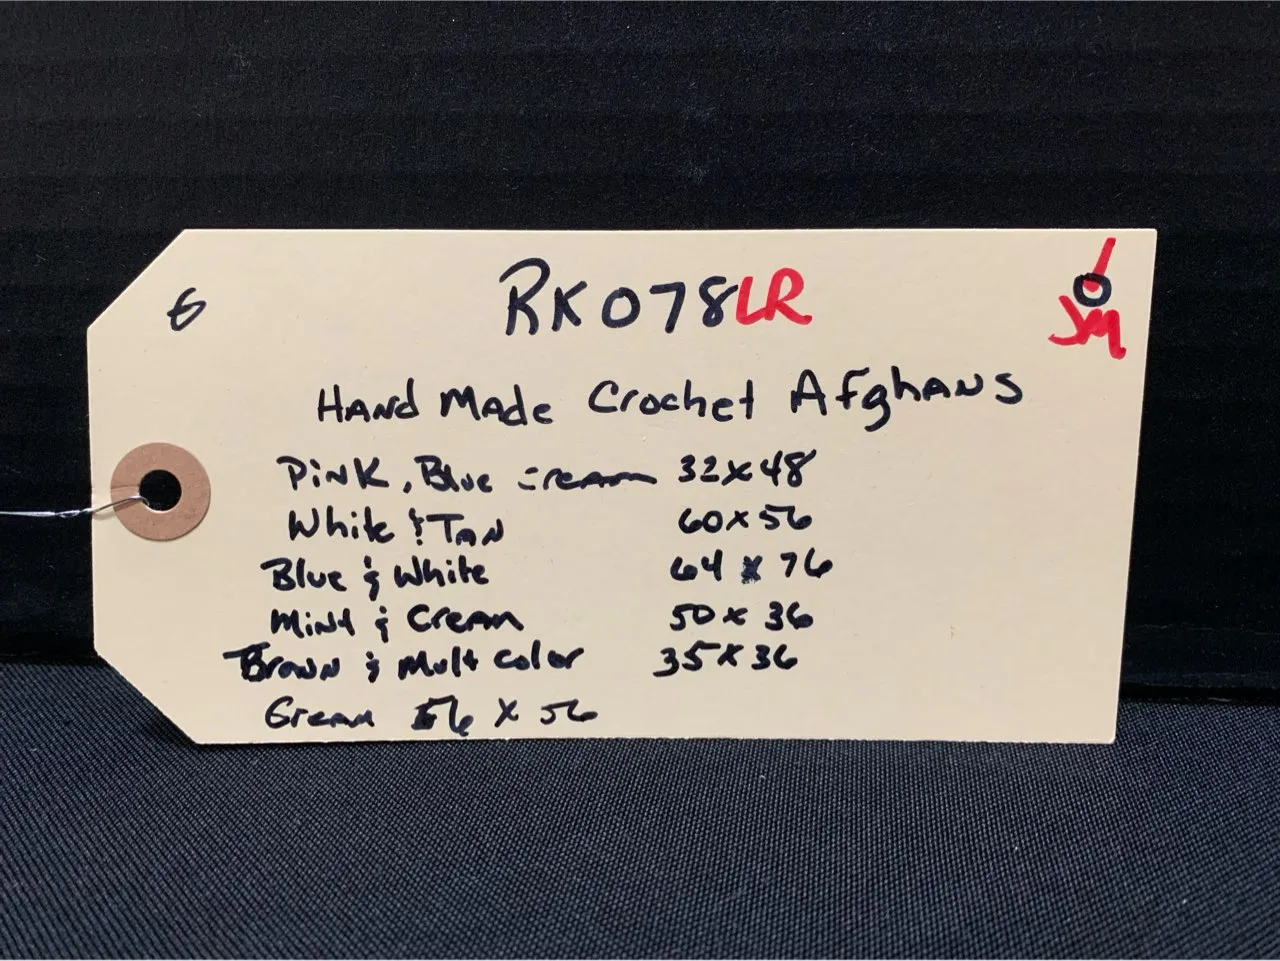 6
RK078LR
JM
Hand Made Crochet Afghans
Pink, Blue Cream 32x48
White & Tan 60x56
Blue & White 64x76
Mint & Cream 50x36
Brown & Mult Color 35x36
Green 56x56